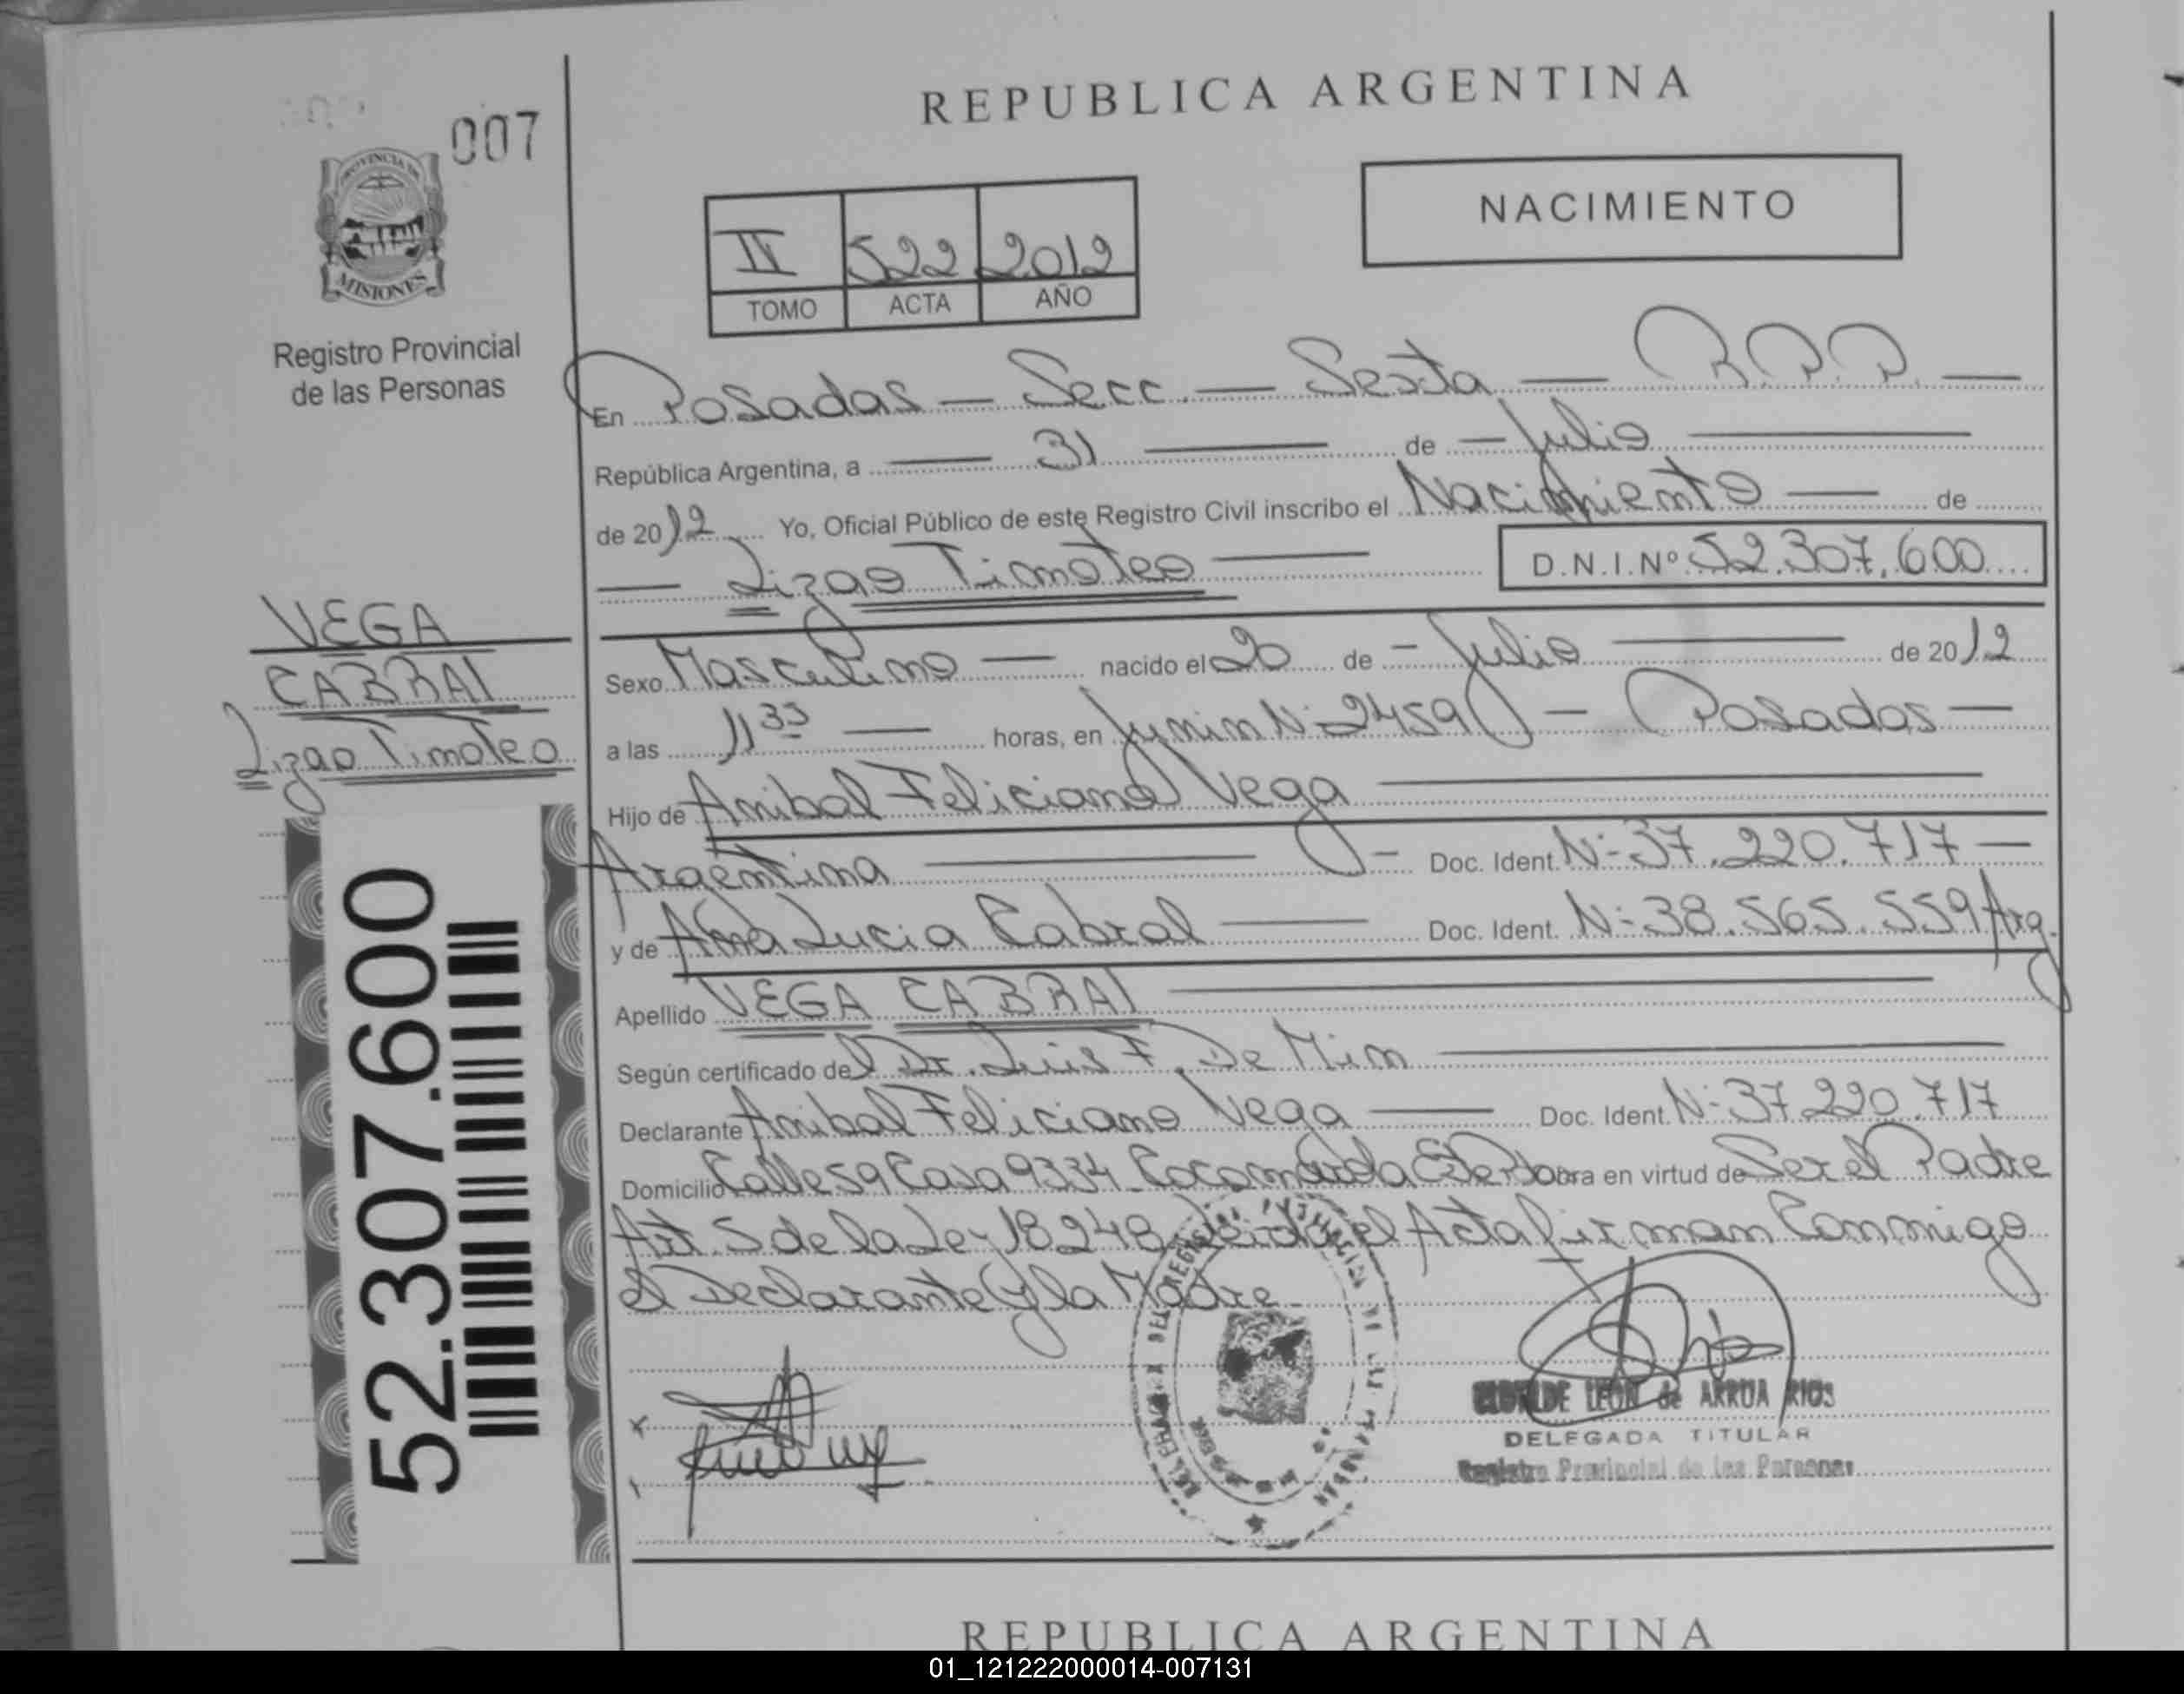 REPUBLICA ARGENTINA
007
PROVINCIA DE
MISIONES
Registro Provincial
de las Personas
NACIMIENTO
II 522 2012
TOMO ACTA AÑO
En Posadas — Secc. — Sexta — R.P.P. —
República Argentina, a — 31 — de — Julio —
de 2012 Yo, Oficial Público de este Registro Civil inscribo el Nacimiento — de
— Lizao Timoteo — D.N.I.Nº 52.307.600
VEGA
CABRAL
Lizao Timoteo
Sexo Masculino — nacido el 20 de — Julio — de 2012
a las 11 35 — horas, en Junin Nº 2459 — Posadas —
Hijo de Anibal Feliciano Vega —
Argentina — Doc. Ident. Nº 37.220.717 —
y de Ana Lucia Cabral — Doc. Ident. Nº 38.565.559 Arg.
Apellido VEGA CABRAL —
Según certificado del Dr. Luis F. De Mim —
Declarante Anibal Feliciano Vega — Doc. Ident. Nº 37.220.717
Domicilio Calle 59 Casa 9334 Obra en virtud de Ser el Padre
Art. 5 de la Ley 18248 Leida el Acta firman Conmigo
el Declarante y la Madre
52.307.600
LEON de ARRUA RIOS
DELEGADA TITULAR
Registro Provincial de las Personas
REPUBLICA ARGENTINA
01_121222000014-007131